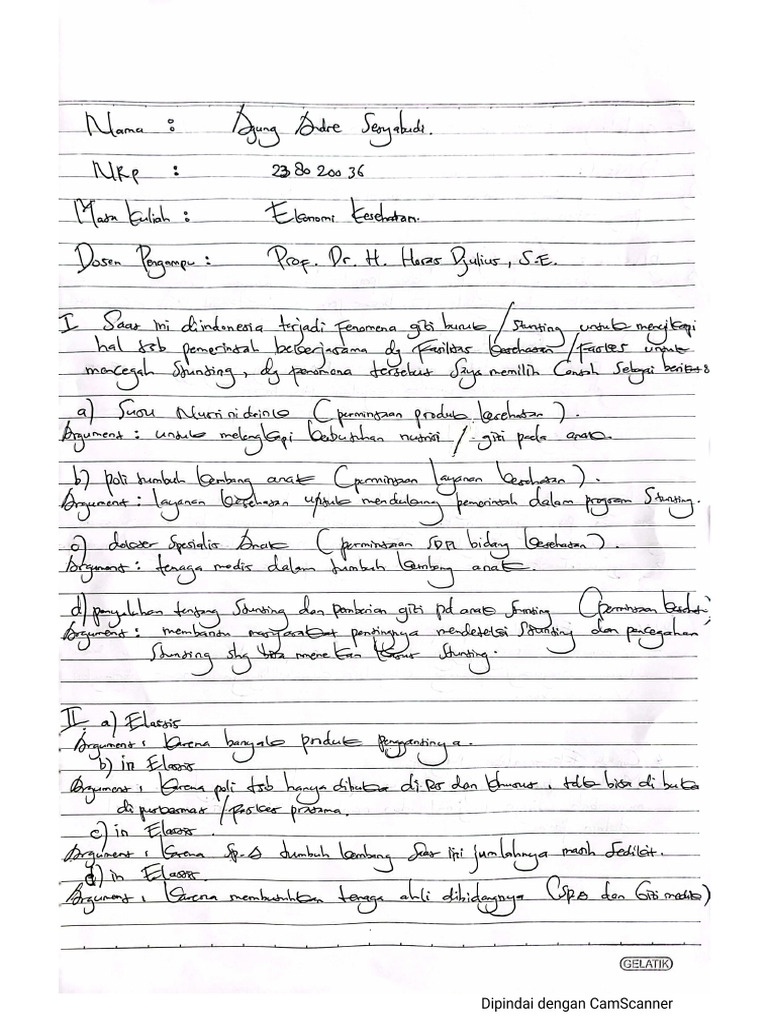 Nama : Agung Andre Setyabudi.
NRP : 238020036
Mata Kuliah : Ekonomi Kesehatan.
Dosen Pengampu : Prof. Dr. H. Horas Djulius, S.E.
I Saat ini diindonesia terjadi fenomena gizi buruk / Stunting untuk menyikapi
hal tsb pemerintah bekerjasama dg Fasilitas kesehatan / Faskes untuk
mencegah Stunting, dg fenomena tersebut Saya memilih Contoh Sebagai berikut :
a) Susu (permintaan produk kesehatan).
Argument : untuk melengkapi kebutuhan nutrisi / gizi pada anak.
b) poli tumbuh kembang anak (permintaan layanan kesehatan).
Argument : layanan kesehatan untuk mendukung pemerintah dalam program Stunting.
c) dokter Spesialis Anak (permintaan SDM bidang kesehatan).
Argument : tenaga medis dalam tumbuh kembang anak.
d) penyuluhan tentang Stunting dan pemberian gizi pd anak Stunting (permintaan
Argument : membantu masyarakat pentingnya mendeteksi Stunting dan pencegahan
Stunting shg bisa menekan kasus Stunting.
II a) Elastis
Argument : karena banyak produk penggantinya.
b) in Elastis
Argument : karena poli tsb hanya dibuka di RS dan khusus, tdk bisa di buka
di puskesmas / faskes pratama.
c) in Elastis.
Argument : karena Sp.A tumbuh kembang Saat ini jumlahnya masih Sedikit.
d) in Elastis.
Argument : karena membutuhkan tenaga ahli dibidangnya (SpA dan Gizi medik)
GELATIK
Dipindai dengan CamScanner